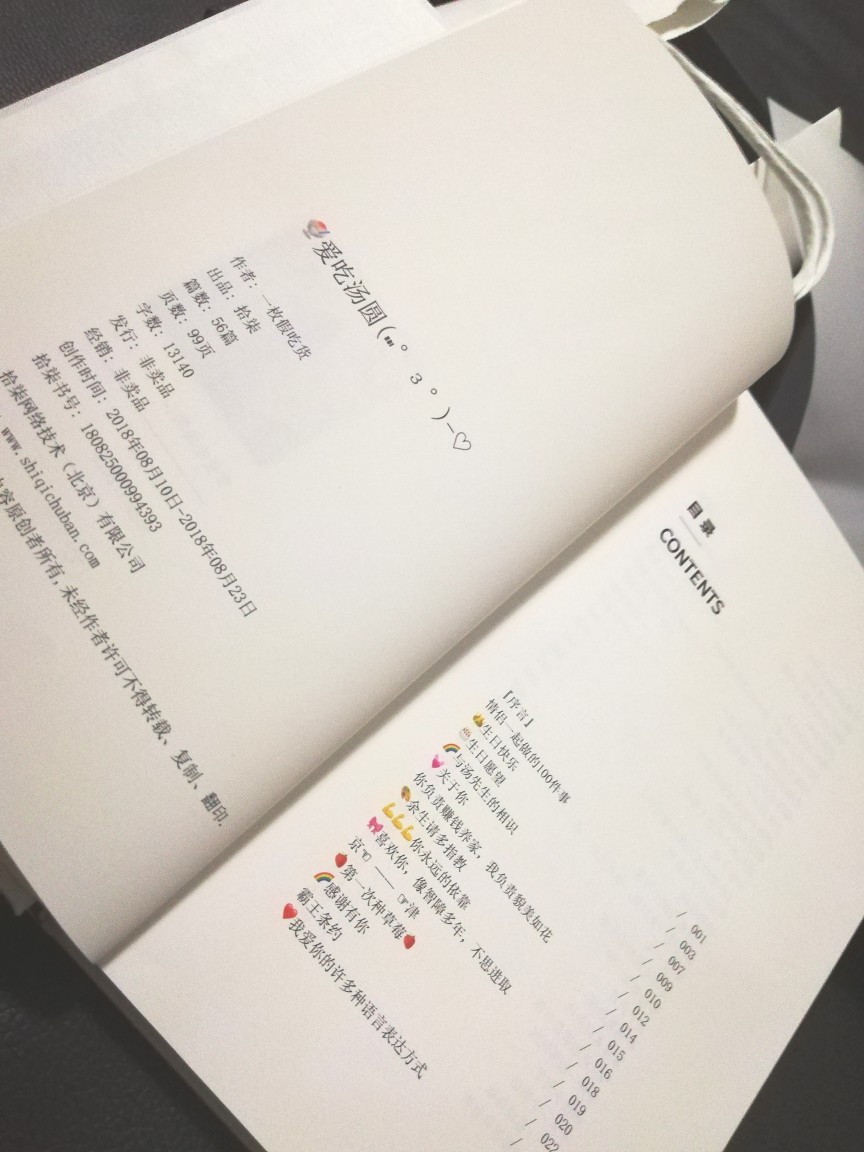 爱吃汤圆(⑉° з °)-♡
作者：一枚假吃货
出品：拾柒
篇数：56篇
页数：99页
字数：13140
发行：非卖品
经销：非卖品
创作时间：2018年08月10日-2018年08月23日
拾柒书号：180825000994393
拾柒网络技术（北京）有限公司
www.shiqichuban.com
容原创者所有,未经作者许可不得转载、复制、翻印.
目录
CONTENTS
『序言』 / 001
情侣一起做的100件事 / 003
生日快乐 / 007
生日愿望 / 009
🌈与汤先生的相识 / 010
💗关于你 / 012
你负责赚钱养家，我负责貌美如花 / 014
余生请多指教 / 015
💪💪💪你永远的依靠 / 016
🎀喜欢你，像智障多年，不思进取 / 018
京☜ —— ☞津 / 019
🍓第一次种草莓🍓 / 020
🌈感谢有你 / 022
霸王条约
❤️我爱你的许多种语言表达方式